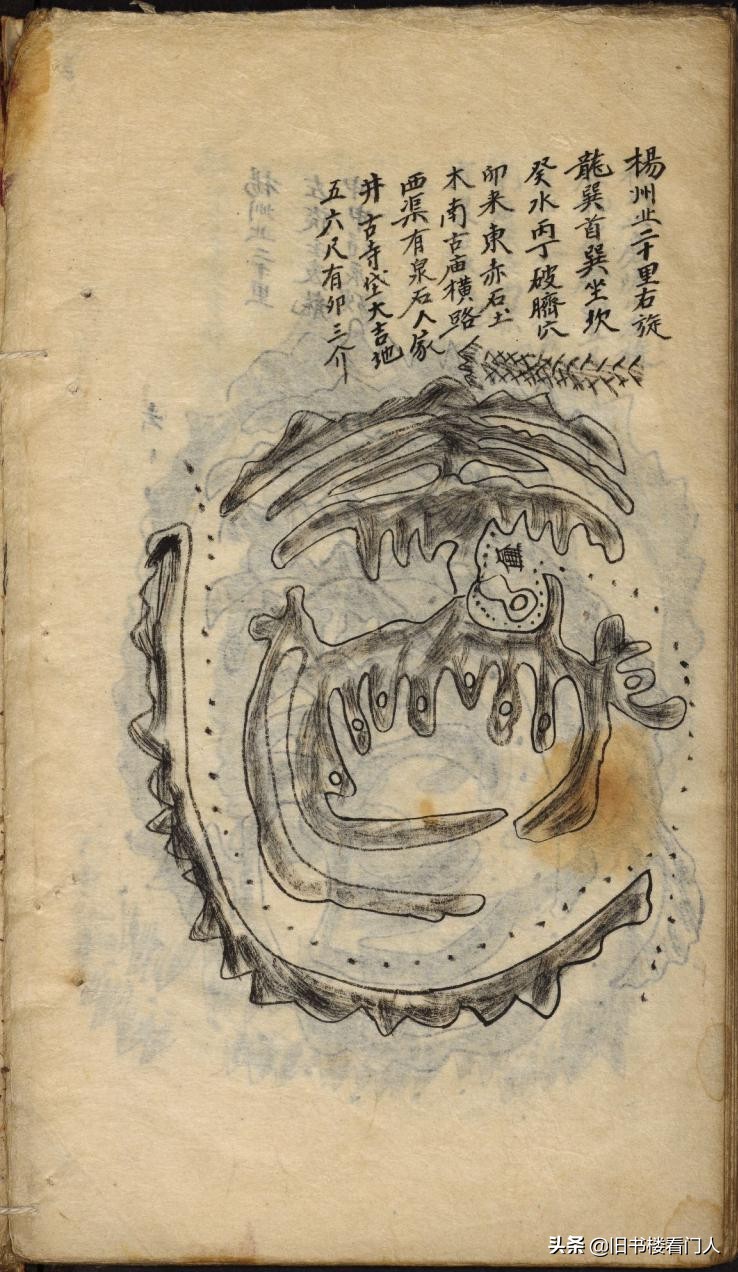 楊州北二十里右旋
龍巽首巽坐坎
癸水丙丁破臍穴
卯来東赤石土
木南古庙橫路
西渠有泉石人家
井古寺垈大吉地
五六尺有卯三介
头条 @旧书楼看门人